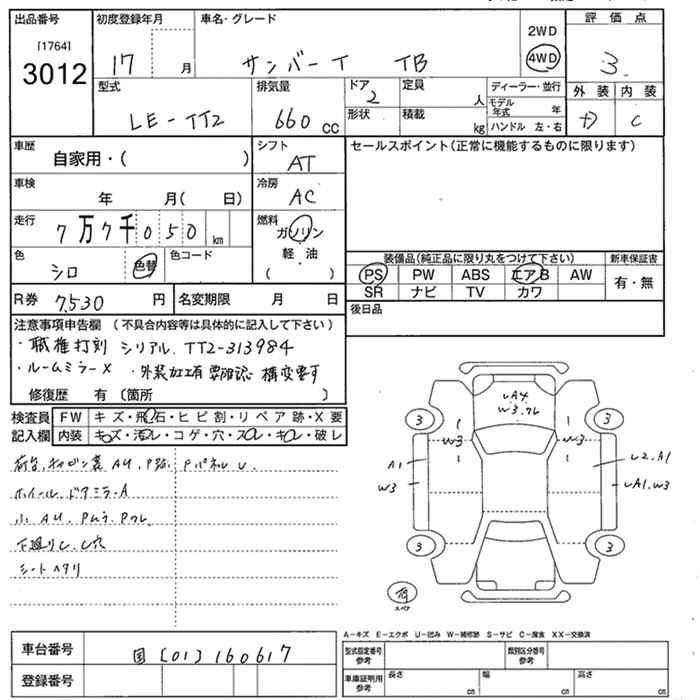 出品番号 初度登録年月 車名・グレード 評価点
[1764]
3012
17 月 サンバー T TB
2WD
4WD
3
型式 排気量 ドア 定員 ディーラー・並行 外装 内装
LE-TT2 660 CC 2 人 モデル年式 年 D C
形状 積載 kg ハンドル 左・右
車歴 自家用・( ) シフト AT セールスポイント(正常に機能するものに限ります)
車検 年 月( 日) 冷房 AC
走行 7万7千050 km 燃料 ガソリン
軽・油
( )
色 シロ 色替 色コード
装備品(純正品に限り丸をつけて下さい) 新車保証書
PS PW ABS エアB AW 有・無
SR ナビ TV カワ
R券 7,530 円 名変期限 月 日 後日品
注意事項申告欄 (不具合内容等は具体的に記入して下さい)
・職権打刻 シリアル.TT2-313984
・ルームミラーX ・外装加工有 要確認 構変要す
修復歴 有 (箇所 )
検査員 FW キズ・飛石・ヒビ割・リペア跡・X要
記入欄 内装 キズ・汚レ・コゲ・穴・スレ・キレ・破レ
ホイール.ドアミラーA
下廻りU、U穴
シートヘタリ
UA4
W3.クレ
3 3
W3 W3
A1 U2.A1
W3 UA1.W3
3 3
荷
スペア
A-キズ E-エクボ U-凹み W-補修跡 S-サビ C-腐食 XX-交換済
車台番号 国[01]160617
登録番号
型式指定番号参考 類別区分番号参考
車庫証明用参考 長さ cm 幅 cm 高さ cm